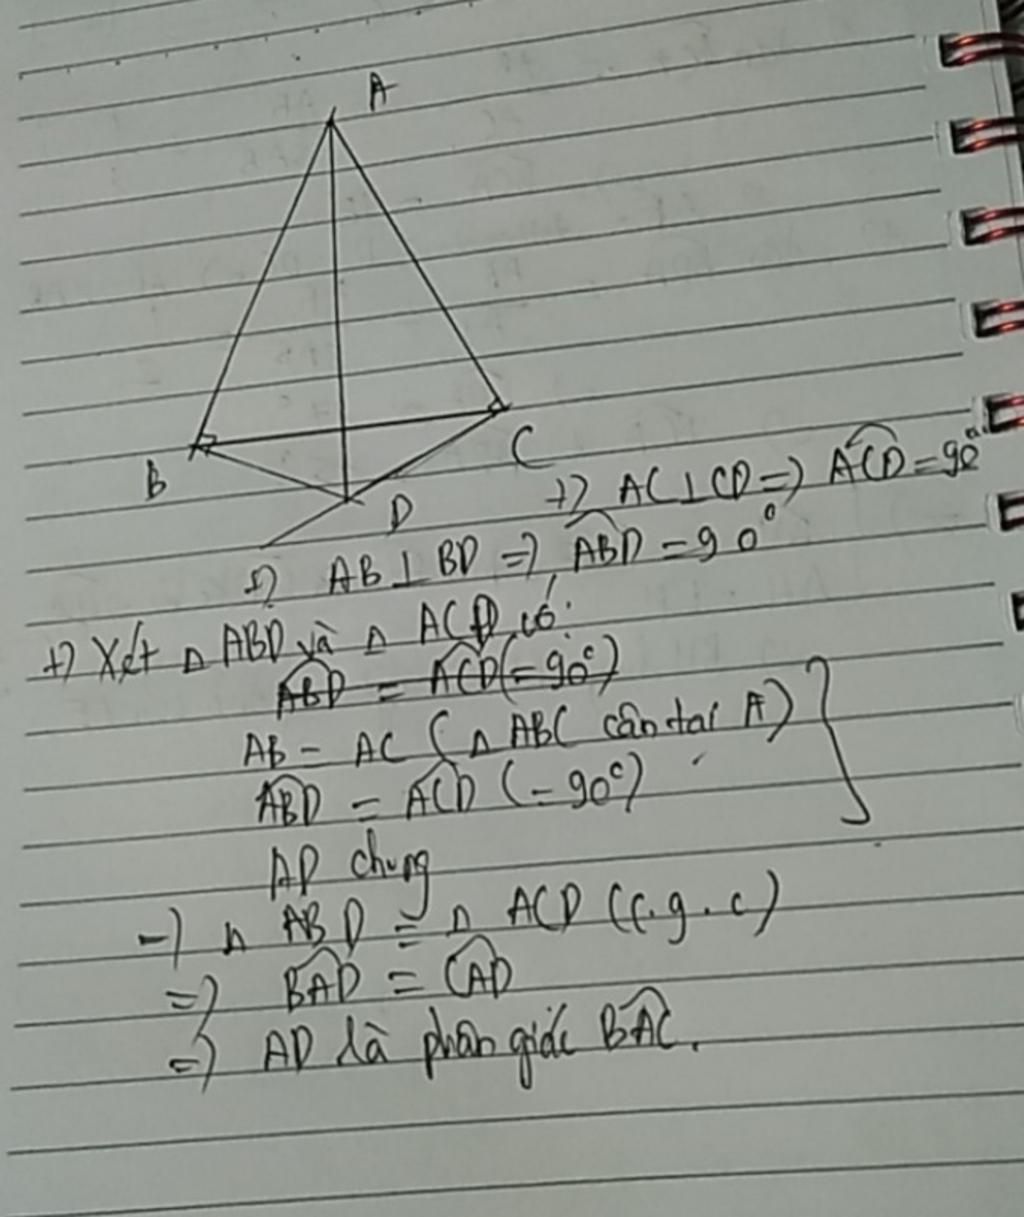 A
B
C
D
+) AC⊥CD => ACD = 90°
+) AB⊥BD => ABD = 90°
+) Xét Δ ABD và Δ ACD có:
ABD = ACD (= 90°)
AB = AC (Δ ABC cân tại A)
ABD = ACD (= 90°)
AD chung
=) Δ ABD = Δ ACD (c.g.c)
=) BAD = CAD
=) AD là phân giác BAC.